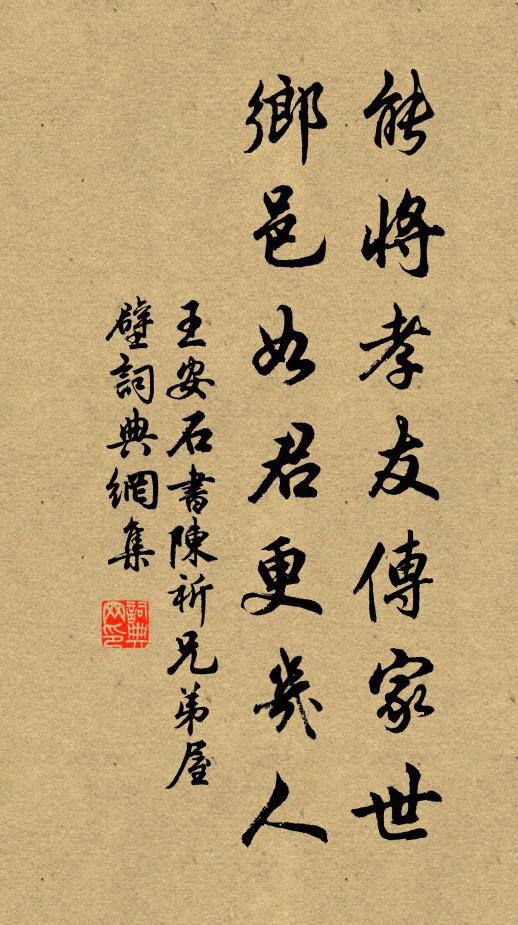 能將孝友傳家世
鄉邑如君更幾人
王安石書陳祈兄弟屋
壁詞典網集
詞典網印